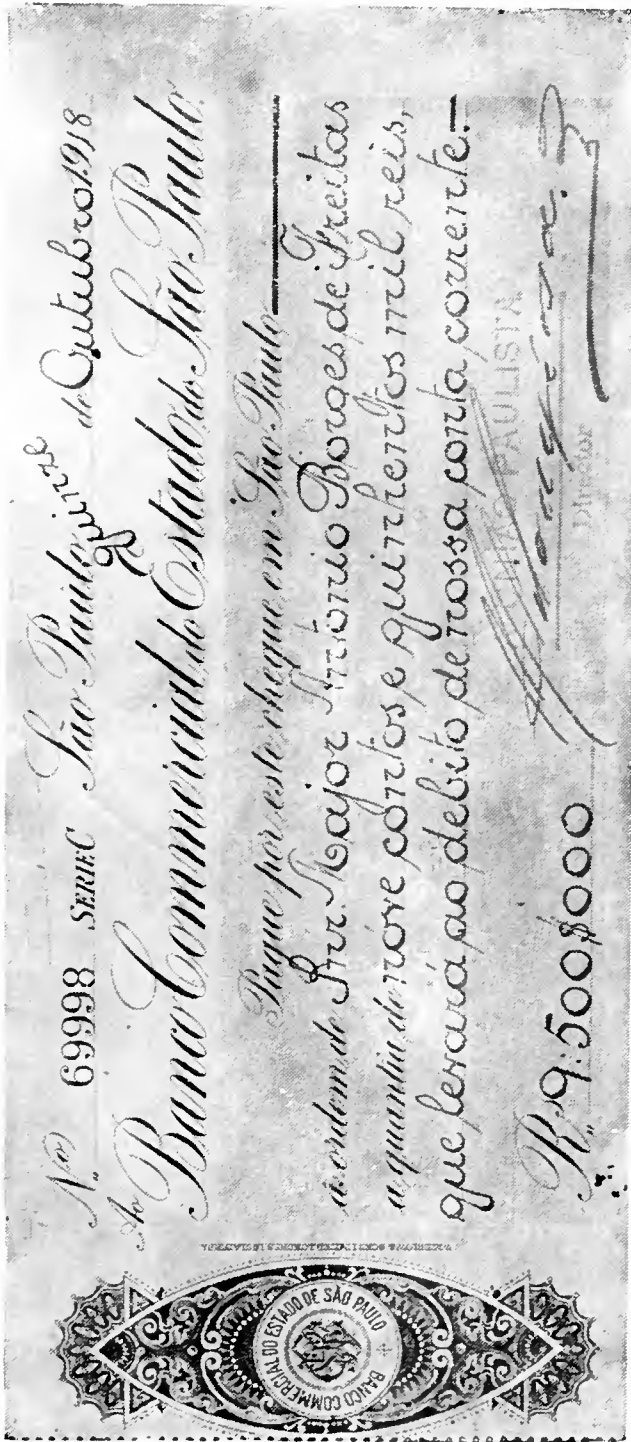 Nº 69998 SERIE C São Paulo, quinze de Outubro 1918
Ao Banco Commercial do Estado de São Paulo
Pague por este cheque em São Paulo
á ordem do Snr. Major Antonio Borges de Freitas
a quantia de nove contos e quinhentos mil reis,
que levará ao debito de nossa conta corrente.
PAULISTA
Rs 9:500$000
Director
BANCO COMMERCIAL DO ESTADO DE SÃO PAULO